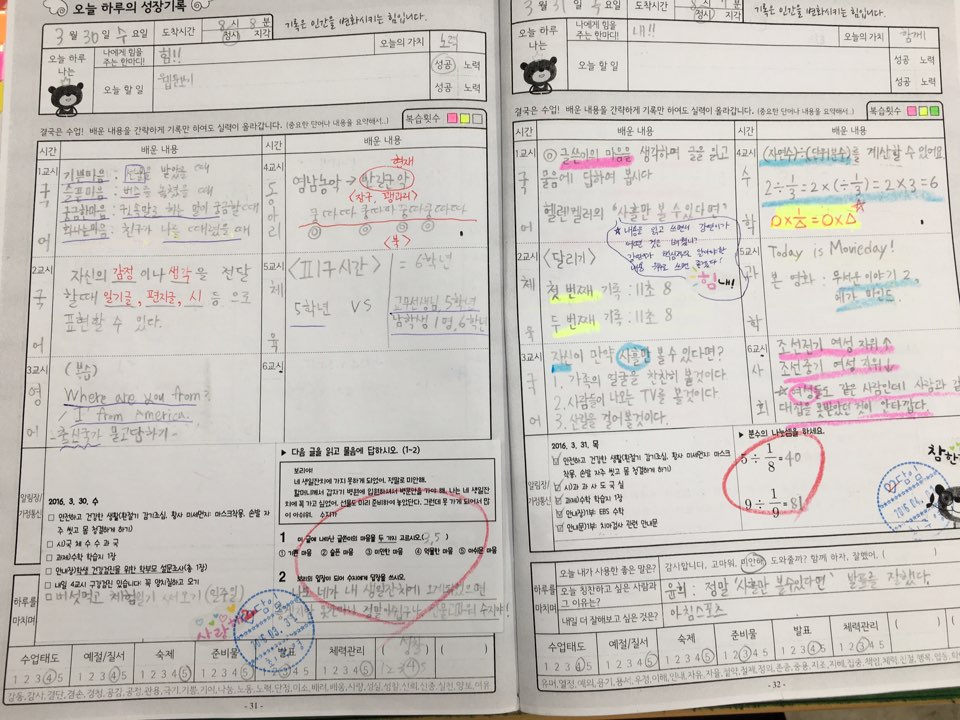 오늘 하루의 성장기록
기록은 인간을 변화시키는 힘입니다.
3 월 30 일 수 요일 도착시간 8 시 8 분
(정시) 지각
오늘 하루 나는
나에게 힘을 주는 한마디! 힘!!
오늘의 가치 노력
오늘 할 일
성공 노력
성공 노력
결국은 수업! 배운 내용을 간략하게 기록만 하여도 실력이 올라갑니다. (중요한 단어나 내용을 요약해서..) 복습횟수
시간 배운 내용 시간 배운 내용
1교시
국어
기쁜마음 : 선물을 받았을 때
슬픈마음 : 버스를 놓쳤을 때
궁금한마음 : 귀속말로 하는 말이 궁금할 때
화나는마음 : 친구가 나를 때렸을 때
2교시
국어
자신의 감정 이나 생각 을 전달
할때 일기글, 편지글, 시 등 으로
표현할 수 있다.
3교시
영어
(복습)
Where are you from?
/ I from America.
출신국가 묻고답하기
4교시
동아리
현재
영남농악 →
<장구, 꽹과리>
<북>
5교시
체육
<피구시간> 1 = 6학년
5학년 VS 교장선생님, 5학년
남학생 1명, 6학년
6교시
알림장/
가정통신
2016. 3. 30. 수
□ 안전하고 건강한 생활(환절기 감기조심, 황사 미세먼지: 마스크착용, 손발 자주 씻고 몸 청결하게 하기)
□ 시)국 체 수 수 과 국
□ 과제)수학 학습지 1장
□ 안내장)학생 건강검진을 위한 학부모 설문조사(총 1장)
□ 내일 4교시 구강검진 있습니다 꼭 양치질하고 오기
▶ 다음 글을 읽고 물음에 답하시오. (1~2)
보리야!
네 생일잔치에 가지 못하게 되었어. 정말로 미안해.
할머니께서 갑자기 병원에 입원하셔서 병문안을 가야 해. 나는 네 생일잔치에 꼭 가고 싶었어. 선물도 미리 준비하여 놓았단다. 그런데 못 가게 되어서 많이 아쉬워. 수지가
1 이 글에 나타난 글쓴이의 마음을 두 가지 고르시오.(3,5)
① 기쁜 마음 ② 슬픈 마음 ③ 미안한 마음 ④ 억울한 마음 ⑤ 아쉬운 마음
2 보리의 입장이 되어 수지에게 답장을 쓰시오.
하루를
마치며
사랑해
수업태도 예절/질서 숙제 준비물 발표 체력관리 ( )
1 2 3 4 5 1 2 3 4 5 1 2 3 4 5 1 2 3 4 5 1 2 3 4 5 1 2 3 4 5
- 31 -
3 월 31 일 목 요일 도착시간
(정시) 지각
기록은 인간을 변화시키는 힘입니다.
오늘 하루 나는
나에게 힘을 주는 한마디!
오늘의 가치 함께
오늘 할 일
성공 노력
성공 노력
결국은 수업! 배운 내용을 간략하게 기록만 하여도 실력이 올라갑니다. (중요한 단어나 내용을 요약해서..) 복습횟수
시간 배운 내용 시간 배운 내용
1교시
국어
◎ 글쓴이의 마음을 생각하며 글을 읽고
물음에 답하여 봅시다
헬렌켈러의 "사흘만 볼 수 있다면"
힘내!
2교시
체육
<달리기>
첫 번째 기록 : 11초 8
두 번째 기록 : 11초 8
3교시
국어
자신이 만약 사흘만 볼 수 있다면?
1. 가족의 얼굴을 찬찬히 볼것이다
2. 사람들이 나오는 TV를 볼것이다
3. 산길을 걸어볼것이다.
4교시
수학
(자연수)÷(단위분수)를 계산할 수 있어요.
2÷1/3=2×(÷1/3)=2×3=6
5교시
과학
Today is Movieday!
본 영화 : 무서운 이야기 2,
6교시
사회
조선전기 여성 지위↑
조선중기 여성 지위↓
☆ 여성들도 같은 사람인데 사람과 같
대접을 못받았던 것이 안타깝다.
알림장/
가정통신
2016. 3. 31. 목
안전하고 건강한 생활(환절기 감기조심, 황사 미세먼지: 마스크착용, 손발 자주 씻고 몸 청결하게 하기)
시)과 과 사 도 국 실
과제)수학 학습지 1장
안내장)1부: EBS 수학
안내문)1부: 치아검사 관련 안내문
▶ 분수의 나눗셈을 하세요.
5÷1/8=40
9÷1/9=81
하루를
마치며
오늘 내가 사용한 좋은 말은? 감사합니다, 고마워, 미안해, 도와줄까? 함께 하자, 잘했어, ( )
오늘 칭찬하고 싶은 사람과 그 이유는? 윤희 : 정말 '사흘만 볼수있다면' 발표를 잘했다.
내일 더 잘해보고 싶은 것은? 아침스포츠
수업태도 예절/질서 숙제 준비물 발표 체력관리 ( )
1 2 3 4 5 1 2 3 4 5 1 2 3 4 5 1 2 3 4 5 1 2 3 4 5 1 2 3 4 5
- 32 -